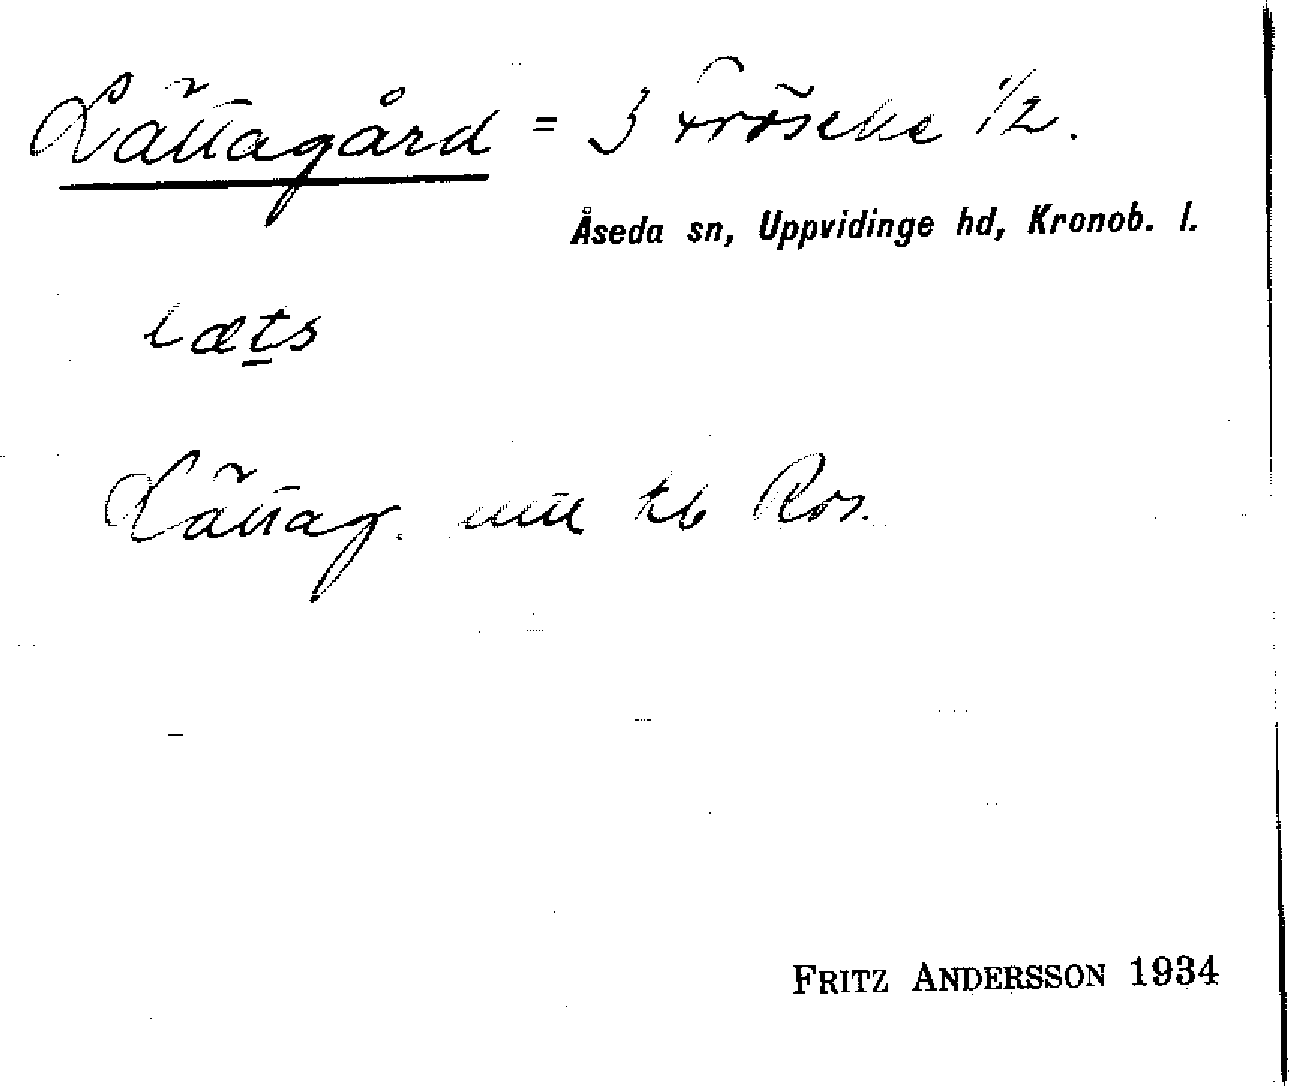 Lättagård = 3 Fröseke 1/2.
Åseda sn, Uppvidinge hd, Kronob. l.
læts
Lättag.
FRITZ ANDERSSON 1934